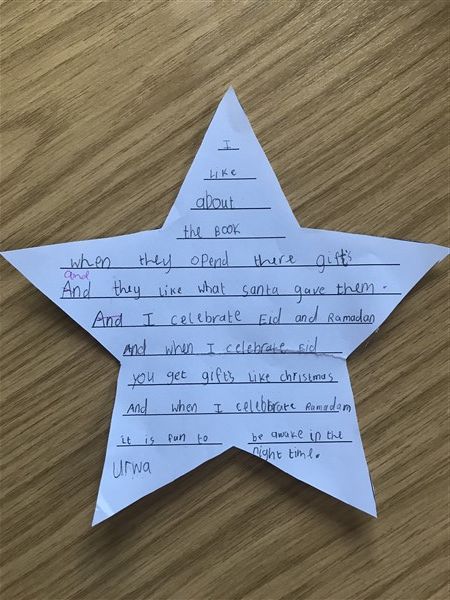 I
like
about
the BOOK
when they opend there gift's
and
And they like what santa gave them.
And I celebrate Eid and Ramadan
And when I celebrate Eid
you get gift's like christmas
And when I celebbrate Ramadam
it is fun to be awake in the
night time.
Urwa